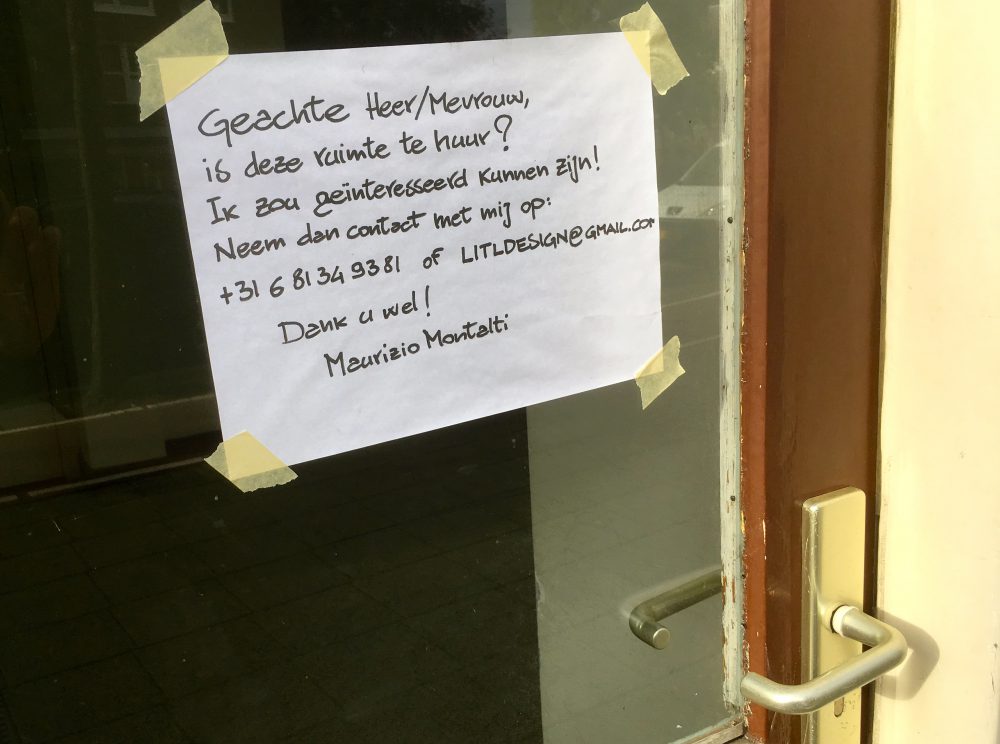 Geachte Heer/Mevrouw,
is deze ruimte te huur?
Ik zou geïnteresseerd kunnen zijn!
Neem dan contact met mij op:
+31 6 81 34 9381 of LITLDESIGN@GMAIL.COM
Dank u wel!
Maurizio Montalti